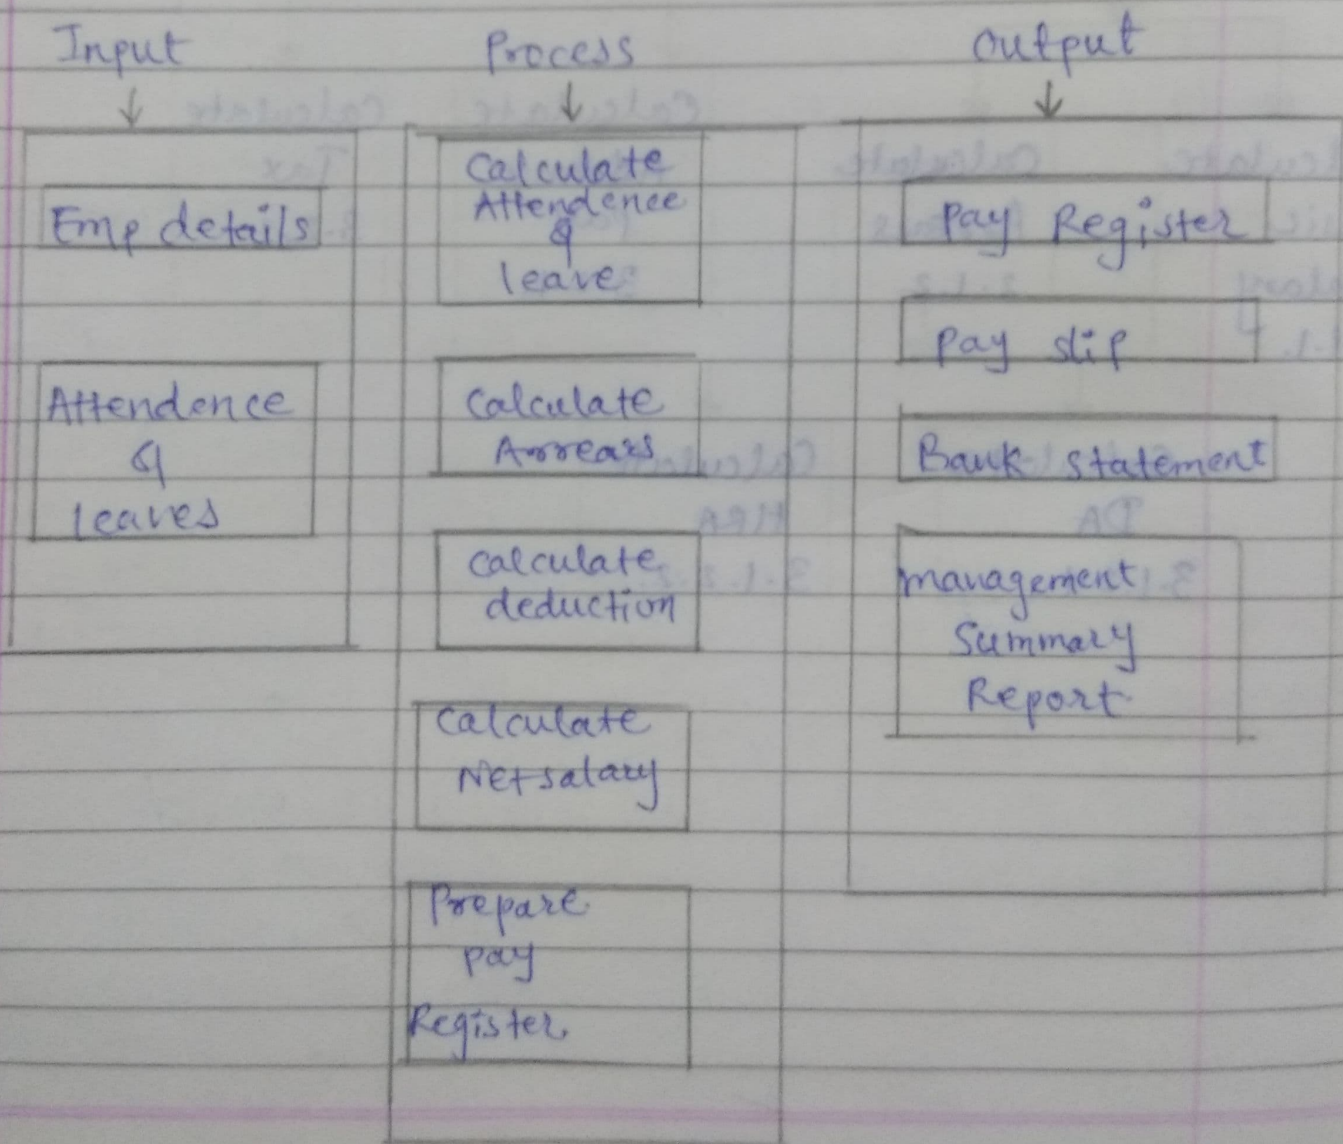 Input
Process
Output
Emp details
Attendence
&
leaves
Calculate
Attendence
&
leave
Calculate
Arrears
Calculate
deduction
Calculate
Net salary
Prepare
pay
Register
Pay Register
Pay slip
Bank statement
management
Summary
Report